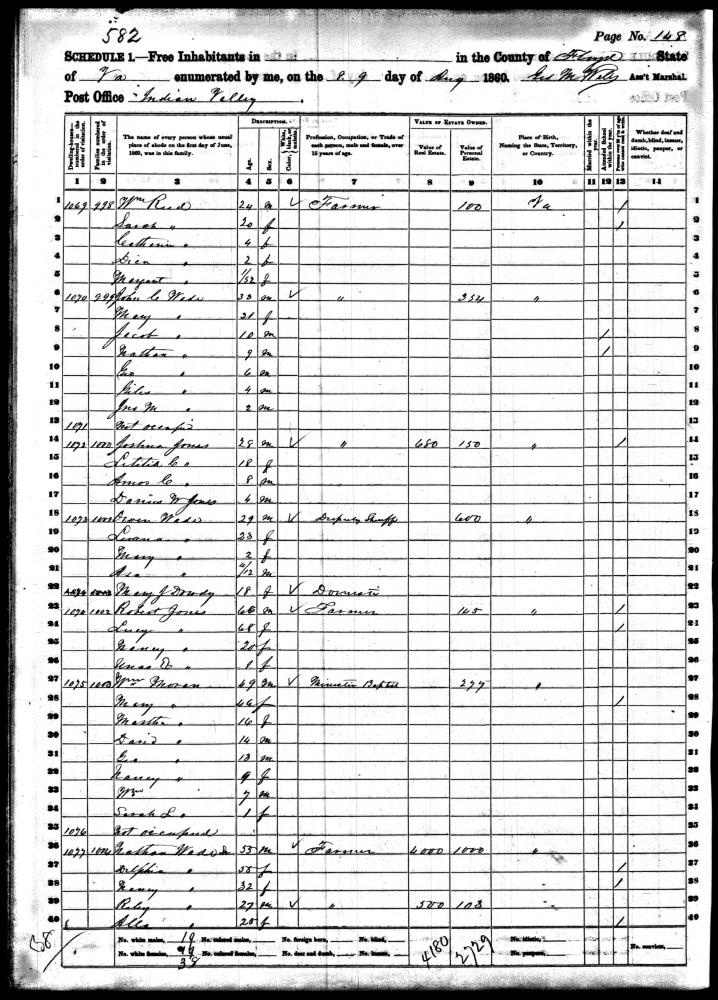 582
Page No. 148
SCHEDULE 1.—Free Inhabitants in in the County of Floyd State
of Va enumerated by me, on the 8. 9 day of Aug 1860. Ass't Marshal.
Post Office Indian Valley.
DESCRIPTION. VALUE OF ESTATE OWNED.
Dwelling-houses—numbered in the order of visitation. Families numbered in the order of visitation. The name of every person whose usual place of abode on the first day of June, 1860, was in this family. Age. Sex. Color, White, black, or mulatto. Profession, Occupation, or Trade of each person, male and female, over 15 years of age. Value of Real Estate. Value of Personal Estate. Place of Birth, Naming the State, Territory, or Country. Married within the year. Attended School within the year. Whether deaf and dumb, blind, insane, idiotic, pauper, or convict.
1 2 3 4 5 6 7 8 9 10 11 12 13 14
1 1069 998 Wm Reed 24 m ✓ Farmer 100 Va / 1
2 Sarah " 20 f / 2
3 Catharine " 4 f 3
4 2 f 4
5 Margaret " 1/52 f 5
6 1070 999 John C Wade 33 m ✓ " 354 " 6
7 Mary " 31 f 7
8 Jacob " 10 m / 8
9 Nathan " 9 m / 9
10 Geo " 6 m 10
11 Giles " 4 m 11
12 Jno M " 2 m 12
13 1071 Not occupied 13
14 1072 1000 Joshua Jones 28 m ✓ " 680 150 " / 14
15 Letitia C " 18 f 15
16 Amos C " 8 m 16
17 Darius W Jones 4 m 17
18 1073 1001 Owen Wade 29 m ✓ Deputy Sheriff 600 " 18
19 " 23 f 19
20 Mary " 2 f 20
21 Asa " /12 m 21
22 Mary J Dowdy 18 f ✓ Domestic 22
23 1074 1002 Robert Jones 66 m ✓ Farmer 145 " / 23
24 Lucy " 68 f / 24
25 Nancy " 20 f 25
26 " 1 f 26
27 1075 1003 Wm Moran 49 m ✓ Minister Baptist 277 " 27
28 Mary " 46 f / 28
29 Martha " 16 f 29
30 David " 14 m 30
31 Geo " 13 m 31
32 Nancy " 9 f 32
33 Wm 7 m 33
34 Sarah L " 1 f 34
35 1076 Not occupied 35
36 1077 1004 Nathan Wade Sr 55 m ✓ Farmer 4000 1000 " 36
37 Delphia " 55 f / 37
38 Nancy " 32 f / 38
39 Riley " 27 m ✓ " 500 103 39
40 " 20 f / 40
No. white males, 19 No. colored males, No. foreign born, No. blind, No. idiotic,
No. white females, No. colored females, No. deaf and dumb, No. insane, 4180 2729 No. paupers, No. convicts,
38